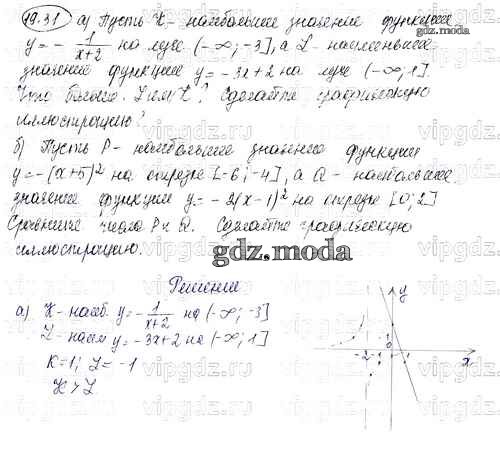 19.31 а) Пусть K - наибольшее значение функции
y = - 1/(x+2) на луче (-∞; -3], а L - наименьшее
значение функции y = - 3x + 2 на луче (-∞; 1].
Что больше: L или K? Сделайте графическую
иллюстрацию?
б) Пусть P - наибольшее значение функции
y = -(x+5)² на отрезке [-6; -4], а Q - наибольшее
значение функции y = - 2(x-1)² на отрезке [0; 2]
Сравните числа P и Q. Сделайте графическую
иллюстрацию.
gdz.moda
Решение
а) K - наиб. y = - 1/(x+2) на (-∞; -3]
L - наим y = - 3x + 2 на (-∞; 1]
K = 1; L = -1
K > L
y
x
-2
vipgdz.ru